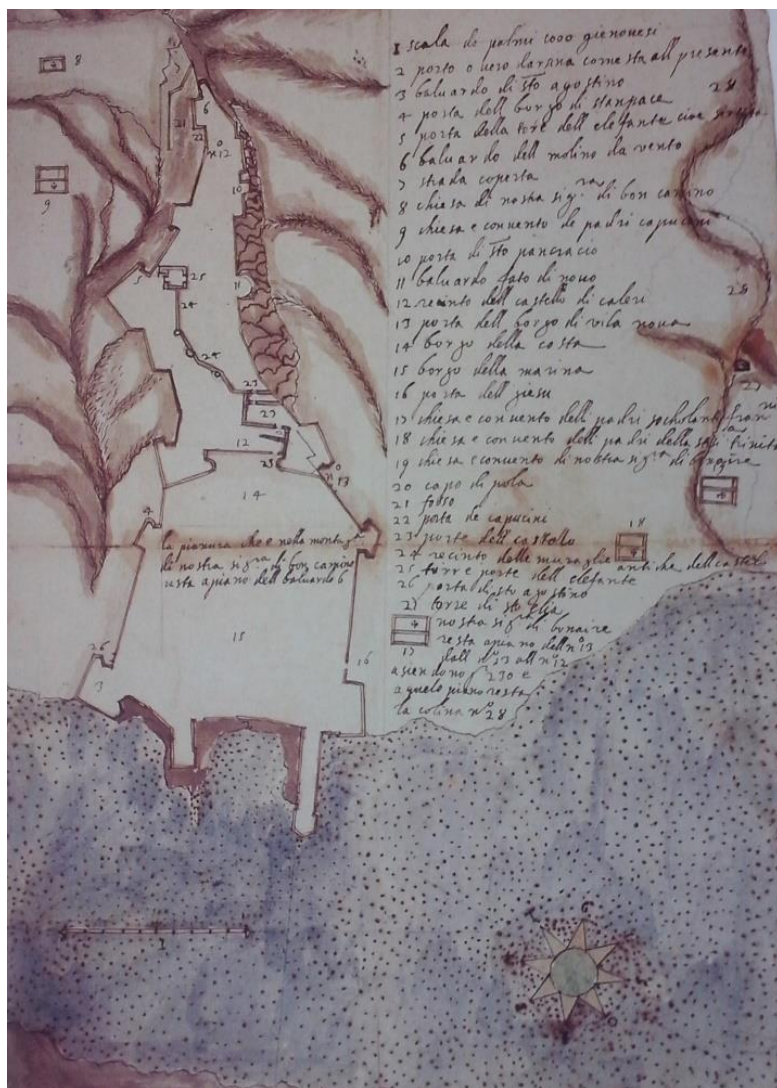 1 scala de palmi 1000 gienovesi
2 porto o vero darsina come sta all presente
3 baluardo di sto agostino
4 porta dell borgo di stanpace
5 porta della tore dell elefante cioe
6 baluardo dell molino da vento
7 strada coperta
8 chiesa di nostra sigra di bon camino
9 chiesa e convento de padri capucini
10 porta di sto pancracio
11 baluardo fato di novo
12 recinto dell castello di caleri
13 porta dell borgo di vila nova
14 borgo della costa
15 borgo della marina
16 porta dell giesu
17 chiesa e convento delli padri socholanti
18 chiesa e convento delli padri della sma trinita
19 chiesa e convento di nostra sigra di bonaire
20 capo di pola
21 fosso
22 porta de capucini
23 porte dell castello
24 recinto delle muraglie antiche dell castel
25 torre e porte dell elefante
26 porta di sto agostino
27 torre di sto elia
nostra sigra di bonaire
resta apiano dell no 13
dall no 13 all no 12
asiendono 230 e
aquelo piano resta
la colina no 28
la pianura che e nella montagna
di nostra sigra di bon camino
resta apiano dell baluardo 6
8
9
21
22
6
no 12
10
11
5
25
24
24
23
23
12
23
no 13
14
4
15
26
3
16
17
18
28
28
27
1